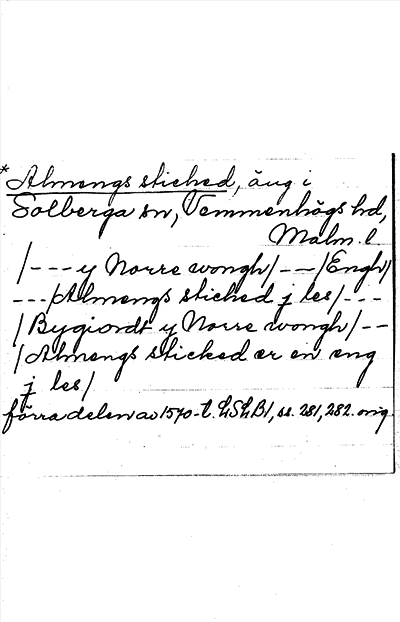 *Almengs sticked, äng i
Solberga sn, Vemmenhögs hd,
Malm. l
/--- y Norre wongh/ -- /Engh/
--- /Almengs sticked j les/ ---
/Bygiordt y Norre wongh/ --
/Almengs sticked er en eng
j les/
förra delen av 1570-t. LSLB1, ss. 281, 282. orig.